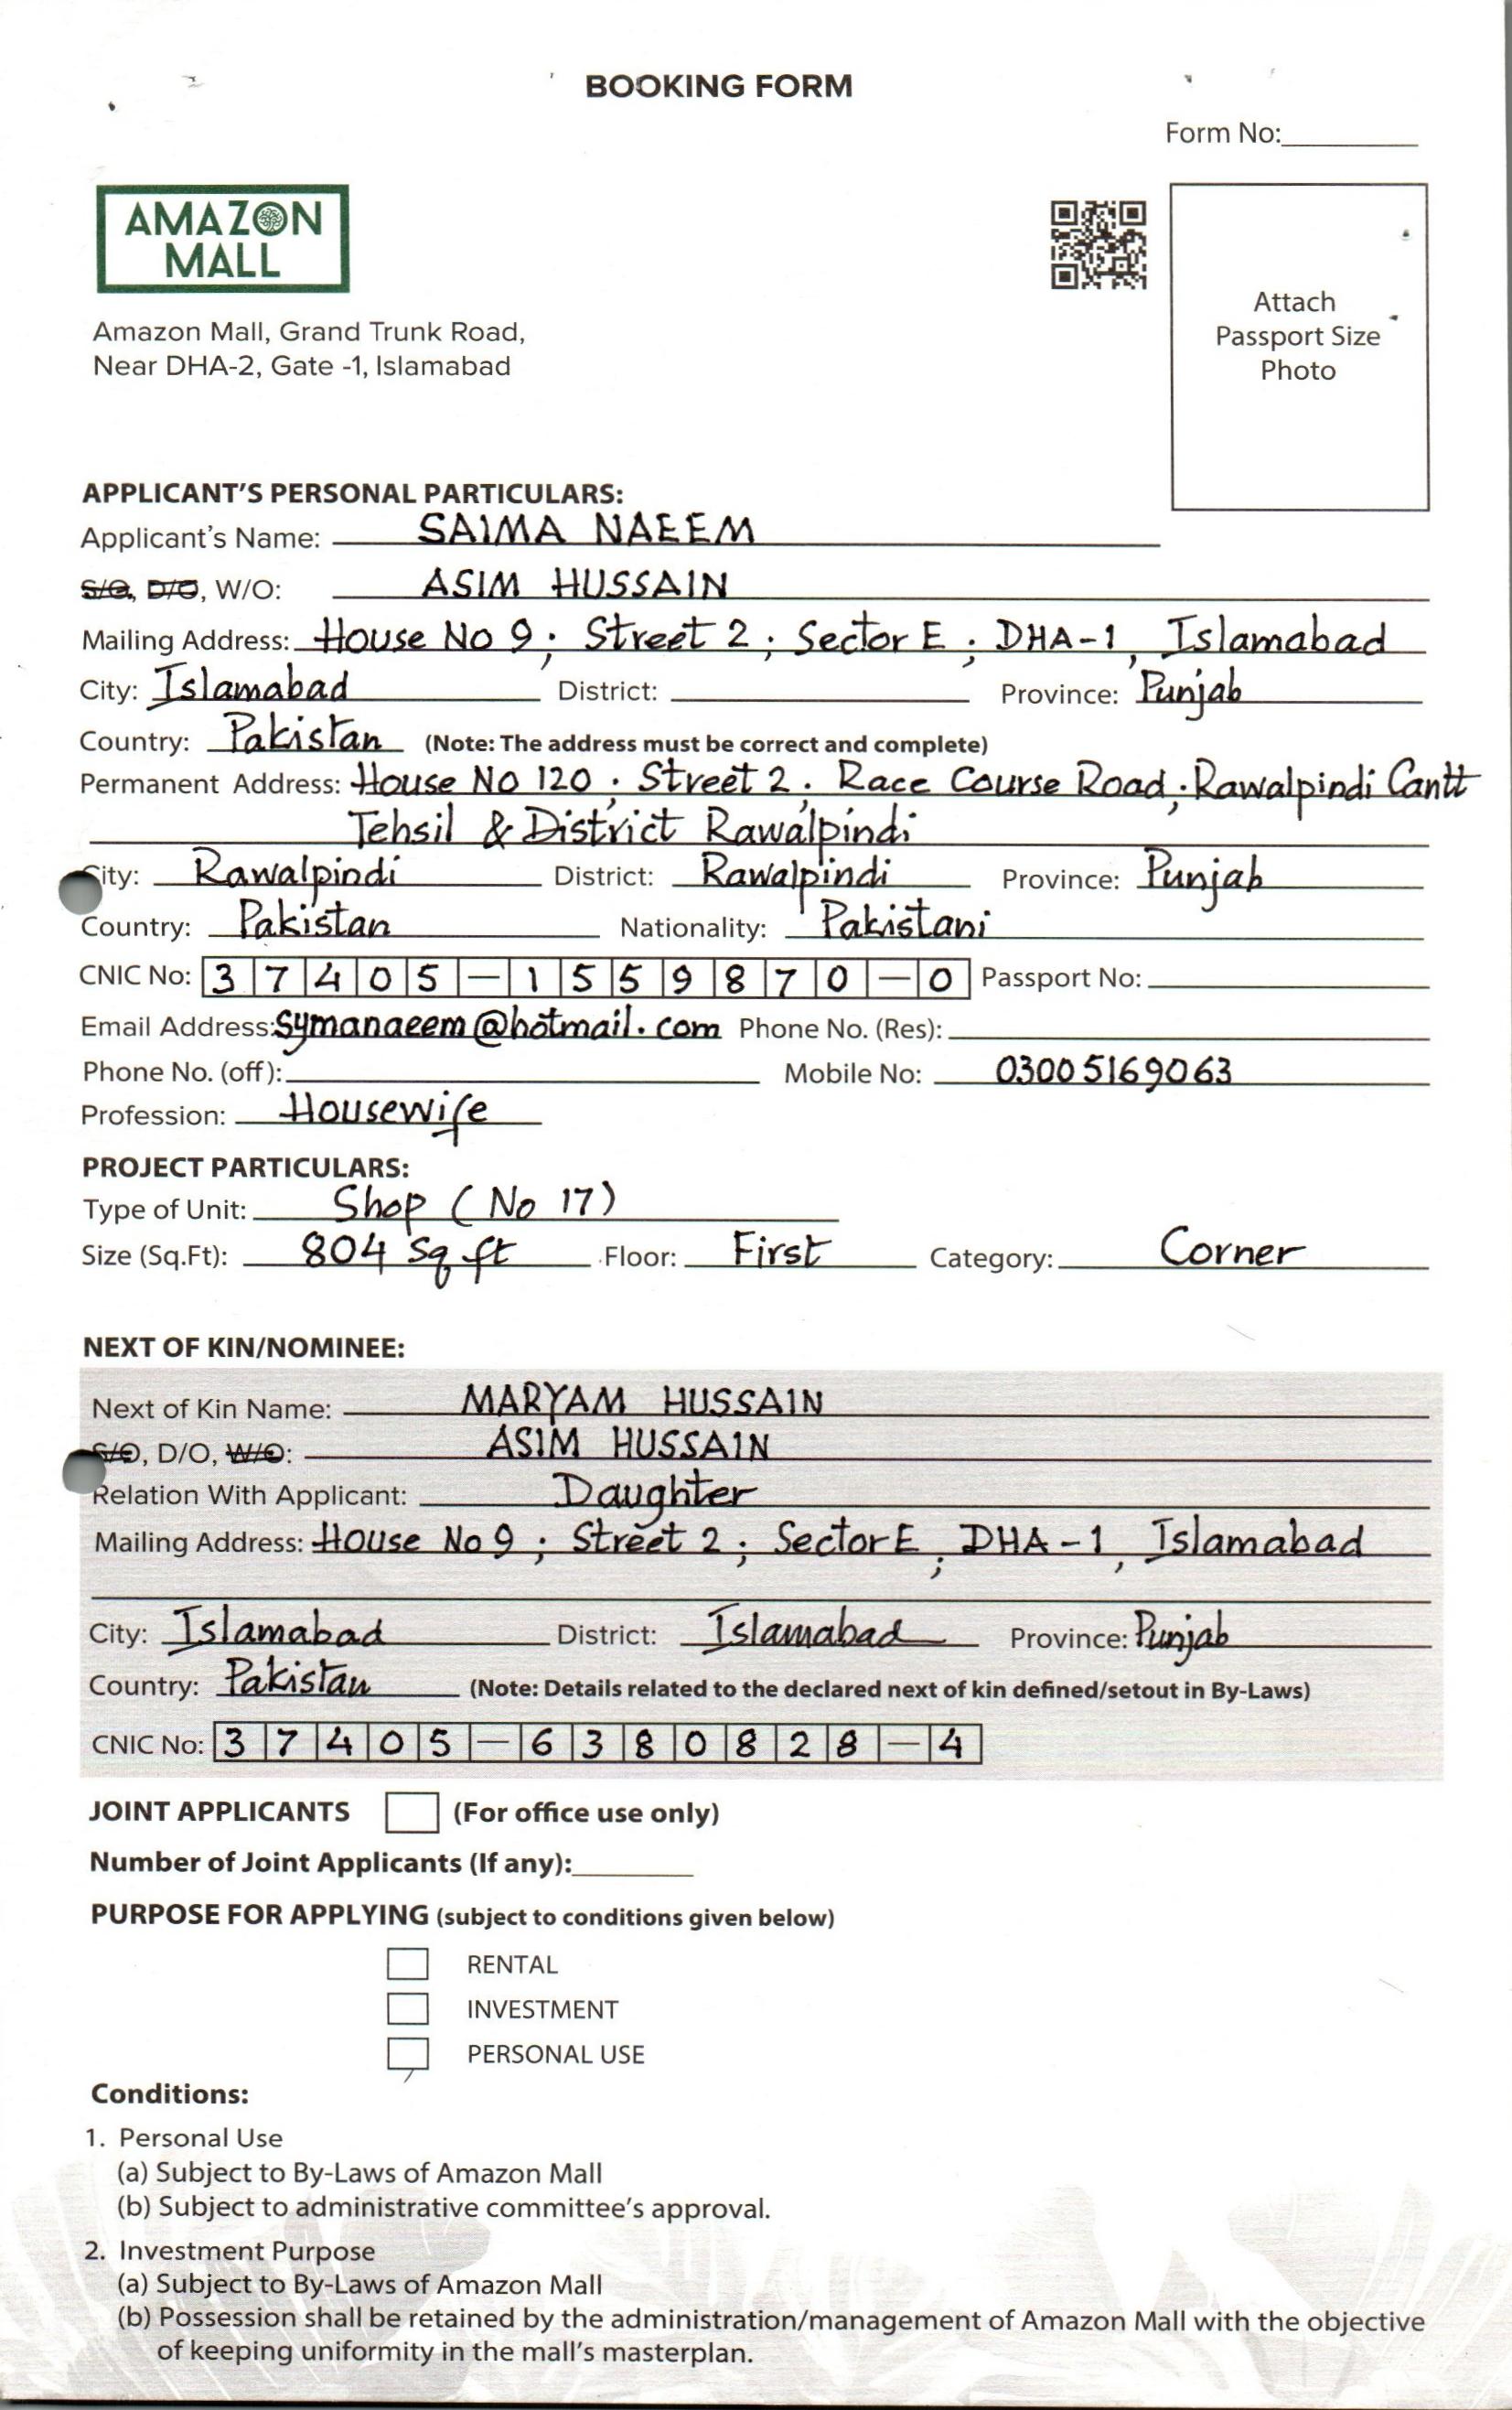 BOOKING FORM
Form No:
AMAZON
MALL
Amazon Mall, Grand Trunk Road,
Near DHA-2, Gate -1, Islamabad
Attach
Passport Size
Photo
APPLICANT'S PERSONAL PARTICULARS:
Applicant's Name: SAIMA NAEEM
S/O, D/O, W/O: ASIM HUSSAIN
Mailing Address: House No 9; Street 2; Sector E; DHA-1, Islamabad
City: Islamabad District: Province: Punjab
Country: Pakistan (Note: The address must be correct and complete)
Permanent Address: House No 120; Street 2; Race Course Road; Rawalpindi Cantt
Tehsil & District Rawalpindi
City: Rawalpindi District: Rawalpindi Province: Punjab
Country: Pakistan Nationality: Pakistani
CNIC No: 37405-1559870-0 Passport No:
Email Address: symanaeem@hotmail.com Phone No. (Res):
Phone No. (off): Mobile No: 03005169063
Profession: Housewife
PROJECT PARTICULARS:
Type of Unit: Shop (No 17)
Size (Sq.Ft): 804 sq ft Floor: First Category: Corner
NEXT OF KIN/NOMINEE:
Next of Kin Name: MARYAM HUSSAIN
S/O, D/O, W/O: ASIM HUSSAIN
Relation With Applicant: Daughter
Mailing Address: House No 9; Street 2; Sector E; DHA-1, Islamabad
City: Islamabad District: Islamabad Province: Punjab
Country: Pakistan (Note: Details related to the declared next of kin defined/setout in By-Laws)
CNIC No: 37405-6380828-4
JOINT APPLICANTS (For office use only)
Number of Joint Applicants (If any):
PURPOSE FOR APPLYING (subject to conditions given below)
RENTAL
INVESTMENT
PERSONAL USE
Conditions:
1. Personal Use
(a) Subject to By-Laws of Amazon Mall
(b) Subject to administrative committee's approval.
2. Investment Purpose
(a) Subject to By-Laws of Amazon Mall
(b) Possession shall be retained by the administration/management of Amazon Mall with the objective
of keeping uniformity in the mall's masterplan.